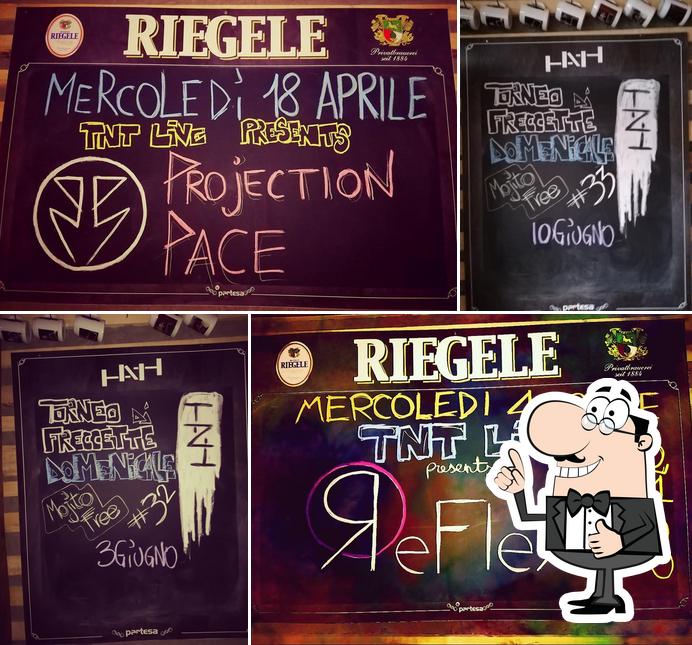 RIEGELE
RIEGELE
Privatbrauerei
seit 1884
MERCOLEDì 18 APRILE
TNT LiVE PRESENTS
PROjECTION
PACE
partesa
HAH
TORNEO di
FRECCETTE
DOMENICALE
TNT
Mojito
Free
#33
10GiUGNO
partesa
HAH
TORNEO di
FRECCETTE
DOMENICALE
TNT
Mojito
Free
#32
3GiUGNO
partesa
RIEGELE
RIEGELE
Privatbrauerei
seit 1884
MERCOLEDI 4
TNT
presents
partesa